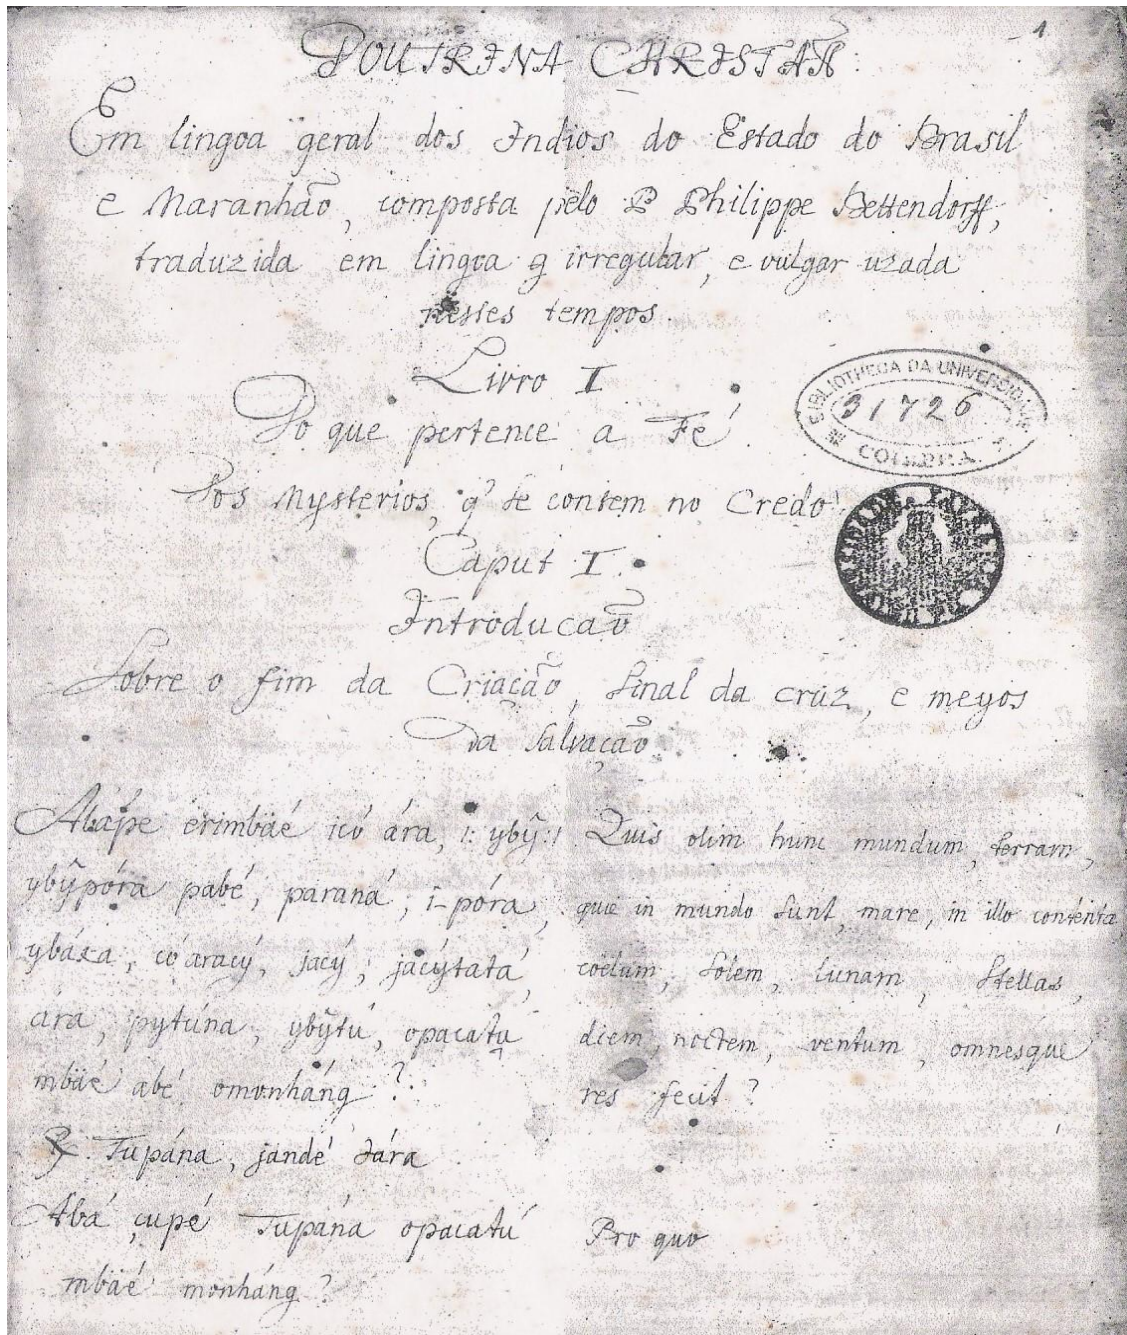 1
DOUTRINA CHRISTAÃ
Em lingoa geral dos Indios do Estado do Brasil
e Maranhão, composta pelo P Philippe Bettendorff,
traduzida em lingoa g irregular, e vulgar uzada
nestes tempos
Livro I
Do que pertence a Fé
Dos Mysterios, q̃ se contem no Credo
Caput I.
Introducaõ
Sobre o fim da Criação, sinal da cruz, e meyos
da salvação
BIBLIOTHECA DA UNIVERSIDADE
31726
COIMBRA
Abápe erimbäé icó ára, /: ybỹ:/
ybỹpóra pabé, paraná, i-póra,
ybáka, có aracý, jacý, jacýtatá,
ára, pytúna, ybỹtú, opacatu
mbäé abé omonháng?
R. Tupána, jandé Jára
Abá çupé Tupána opacatú
mbäé monháng?
Quis olim hunc mundum, terram,
quæ in mundo sunt, mare, in illo contenta
coëlum, solem, lunam, stellas,
diem, noctem, ventum, omnesque
res fecit?
Pro quo